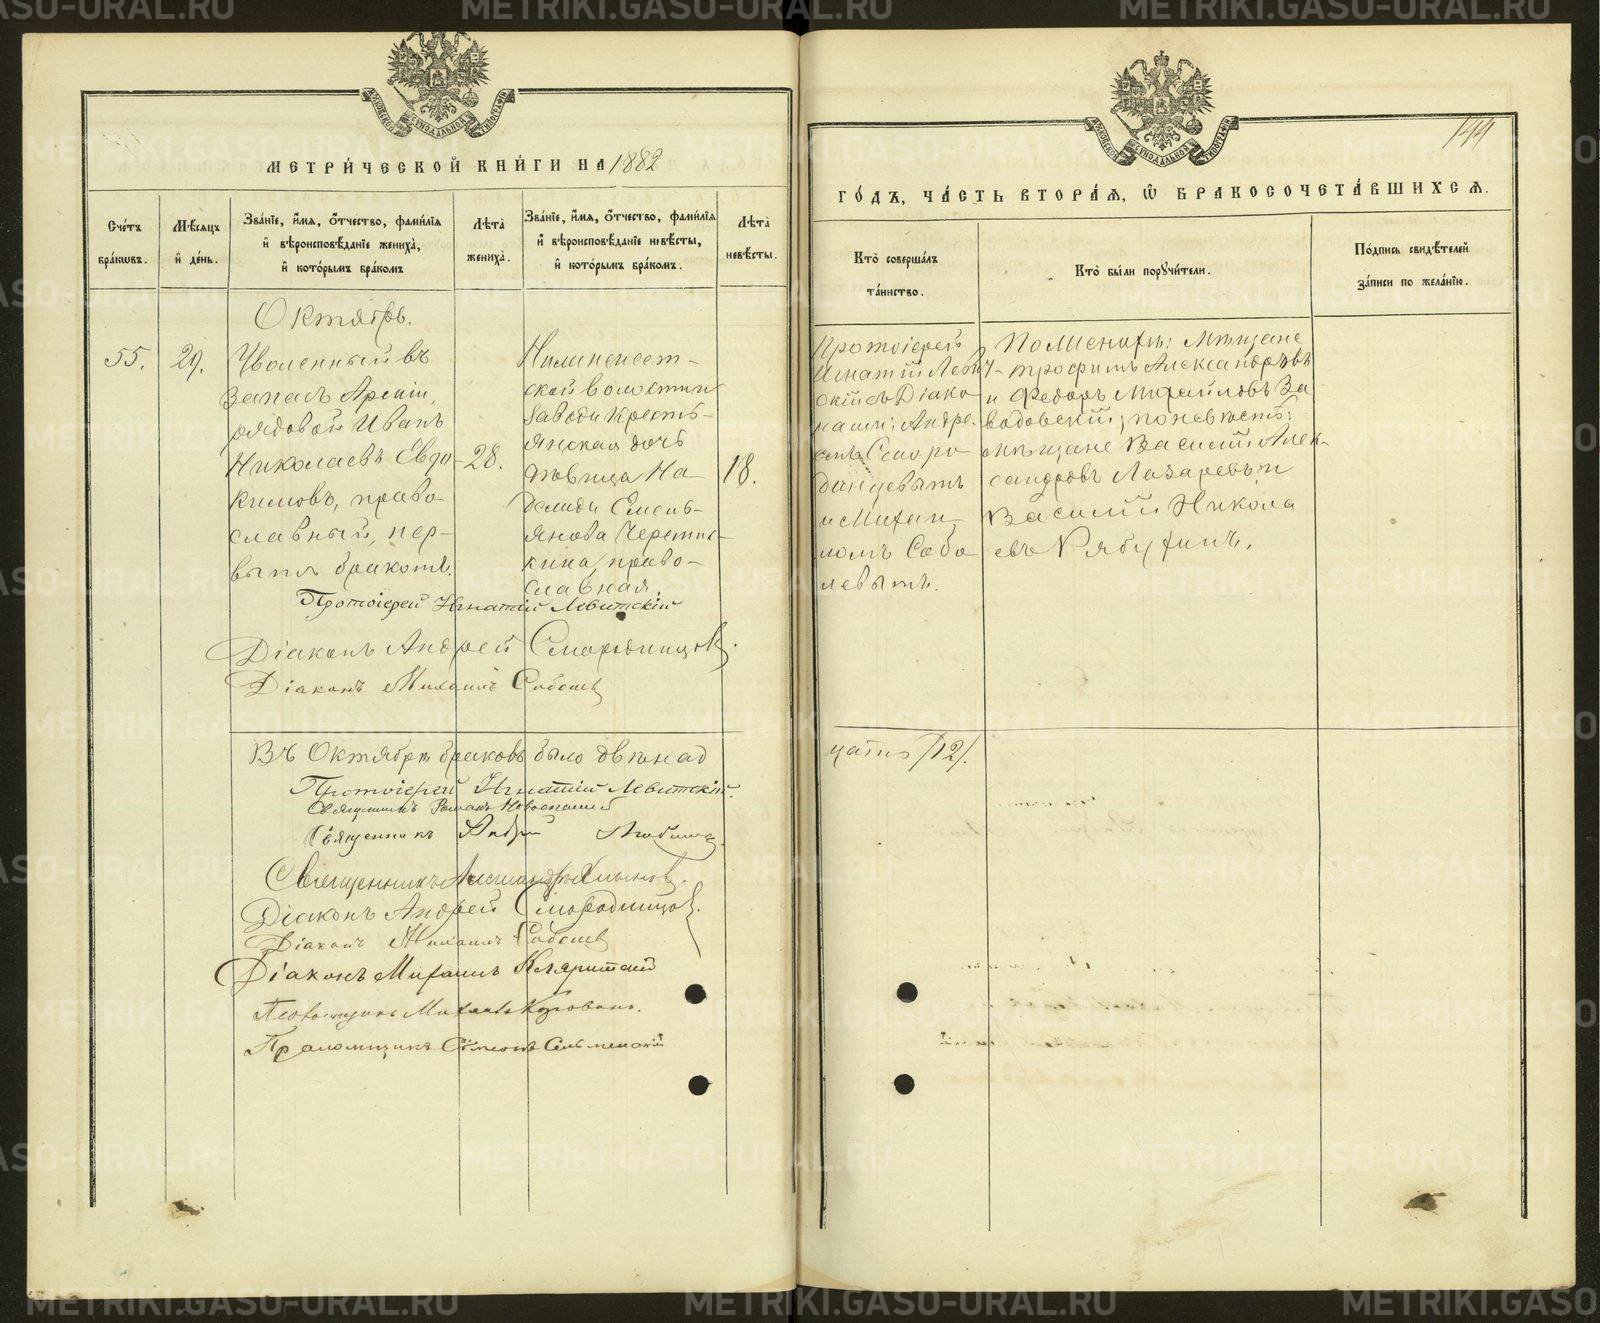 МЕТРИ́ЧЕСКОЙ КНИ́ГИ НА 1882
Сче́тъ бра́кωвъ.
Мѣ́сяцъ и҆ де́нь.
Зва́нїе, и҆́мя, ѻ҆́тчество, фами́лїя и҆ вѣроисповѣ́данїе жениха̀, и҆ кото́рымъ бра́комъ
Лѣ́та жениха̀.
Зва́нїе, и҆́мя, ѻ҆́тчество, фами́лїя и҆ вѣроисповѣ́данїе невѣ́сты, и҆ кото́рымъ бра́комъ.
Лѣ́та невѣ́сты.
Октябрь.
55.
29.
Уволенный въ
запасъ Арміи,
рядовой Иванъ
Николаевъ Евдо-
кимовъ, право-
славный, пер-
вымъ бракомъ.
28.
ской волости
завода кресть-
янская дочь
дѣвица На
Емель-
янова
кина, право-
славная.
18.
Протоіерей Игнатій Левитскій
Діаконъ Андрей Смородинцовъ.
Діаконъ Михаилъ Соболевъ
Въ Октябрѣ браковъ было двѣнад
Протоіерей Игнатій Левитскій.
Священникъ Романъ
Священникъ Андрей
Священникъ Александръ
Діаконъ Андрей Смородинцовъ.
Діаконъ Михаилъ Соболевъ
Діаконъ Михаилъ
Псаломщикъ Михаилъ
Псаломщикъ Сѵмеонъ
144
ГО́ДЪ, ЧА́СТЬ ВТОРА́Я, Ѽ БРАКОСОЧЕТА́ВШИХСЯ.
Кто̀ соверша́лъ та́инство.
Кто̀ бы́ли поручи́тели.
По́дпись свидѣ́телей за́писи по жела́нїю.
Протоіерей
Игнатій Левит-
скій съ Діако
нами: Андре-
емъ Сморо
динцевымъ
и Михаи
ломъ Собо
левымъ.
По женихѣ: мѣщане
Трофимъ Александровъ
и Федоръ Михайловъ За
вадовскій; по невѣстѣ:
мѣщане Василій Алек-
сандровъ Лазаревъ и
Василій Никола
евъ Рябухинъ.
цать /12/.